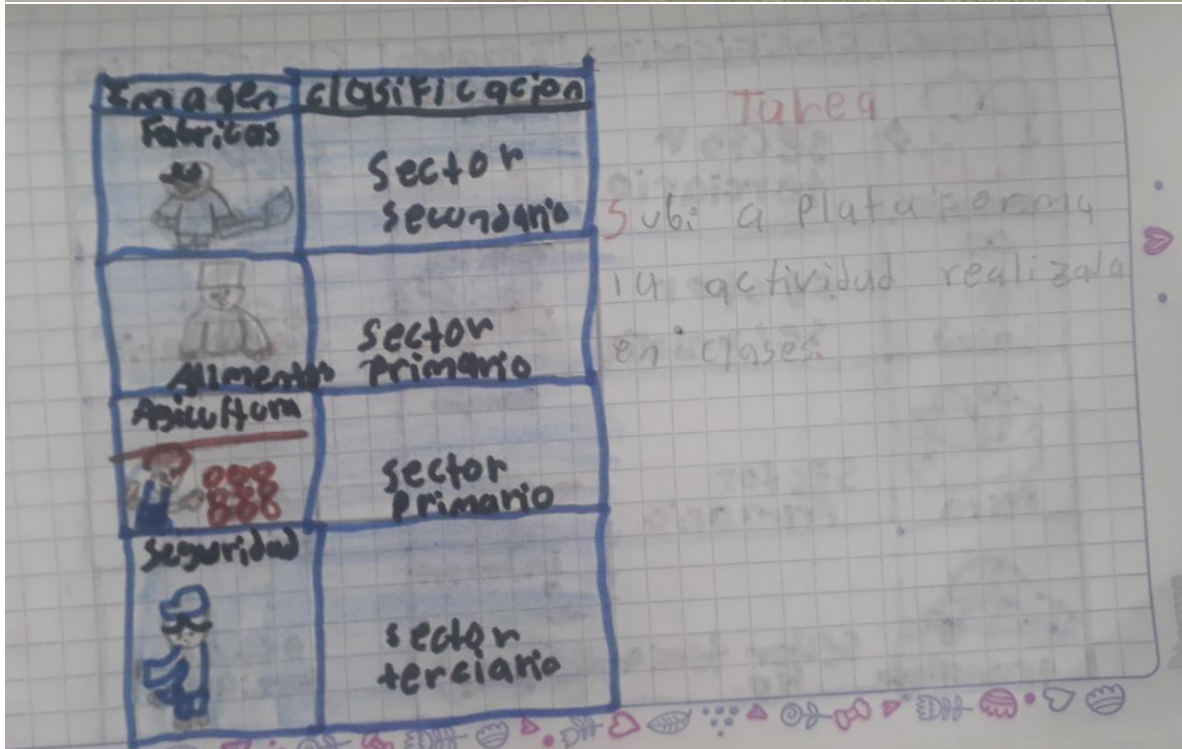 Imagen clasificacion
Fabricas
Sector
secundario
sector
Alimentos primario
Agicultura
sector
primario
Seguridad
sector
terciario
Tarea
Subi a plataporma
la actividad realizada
en clases.